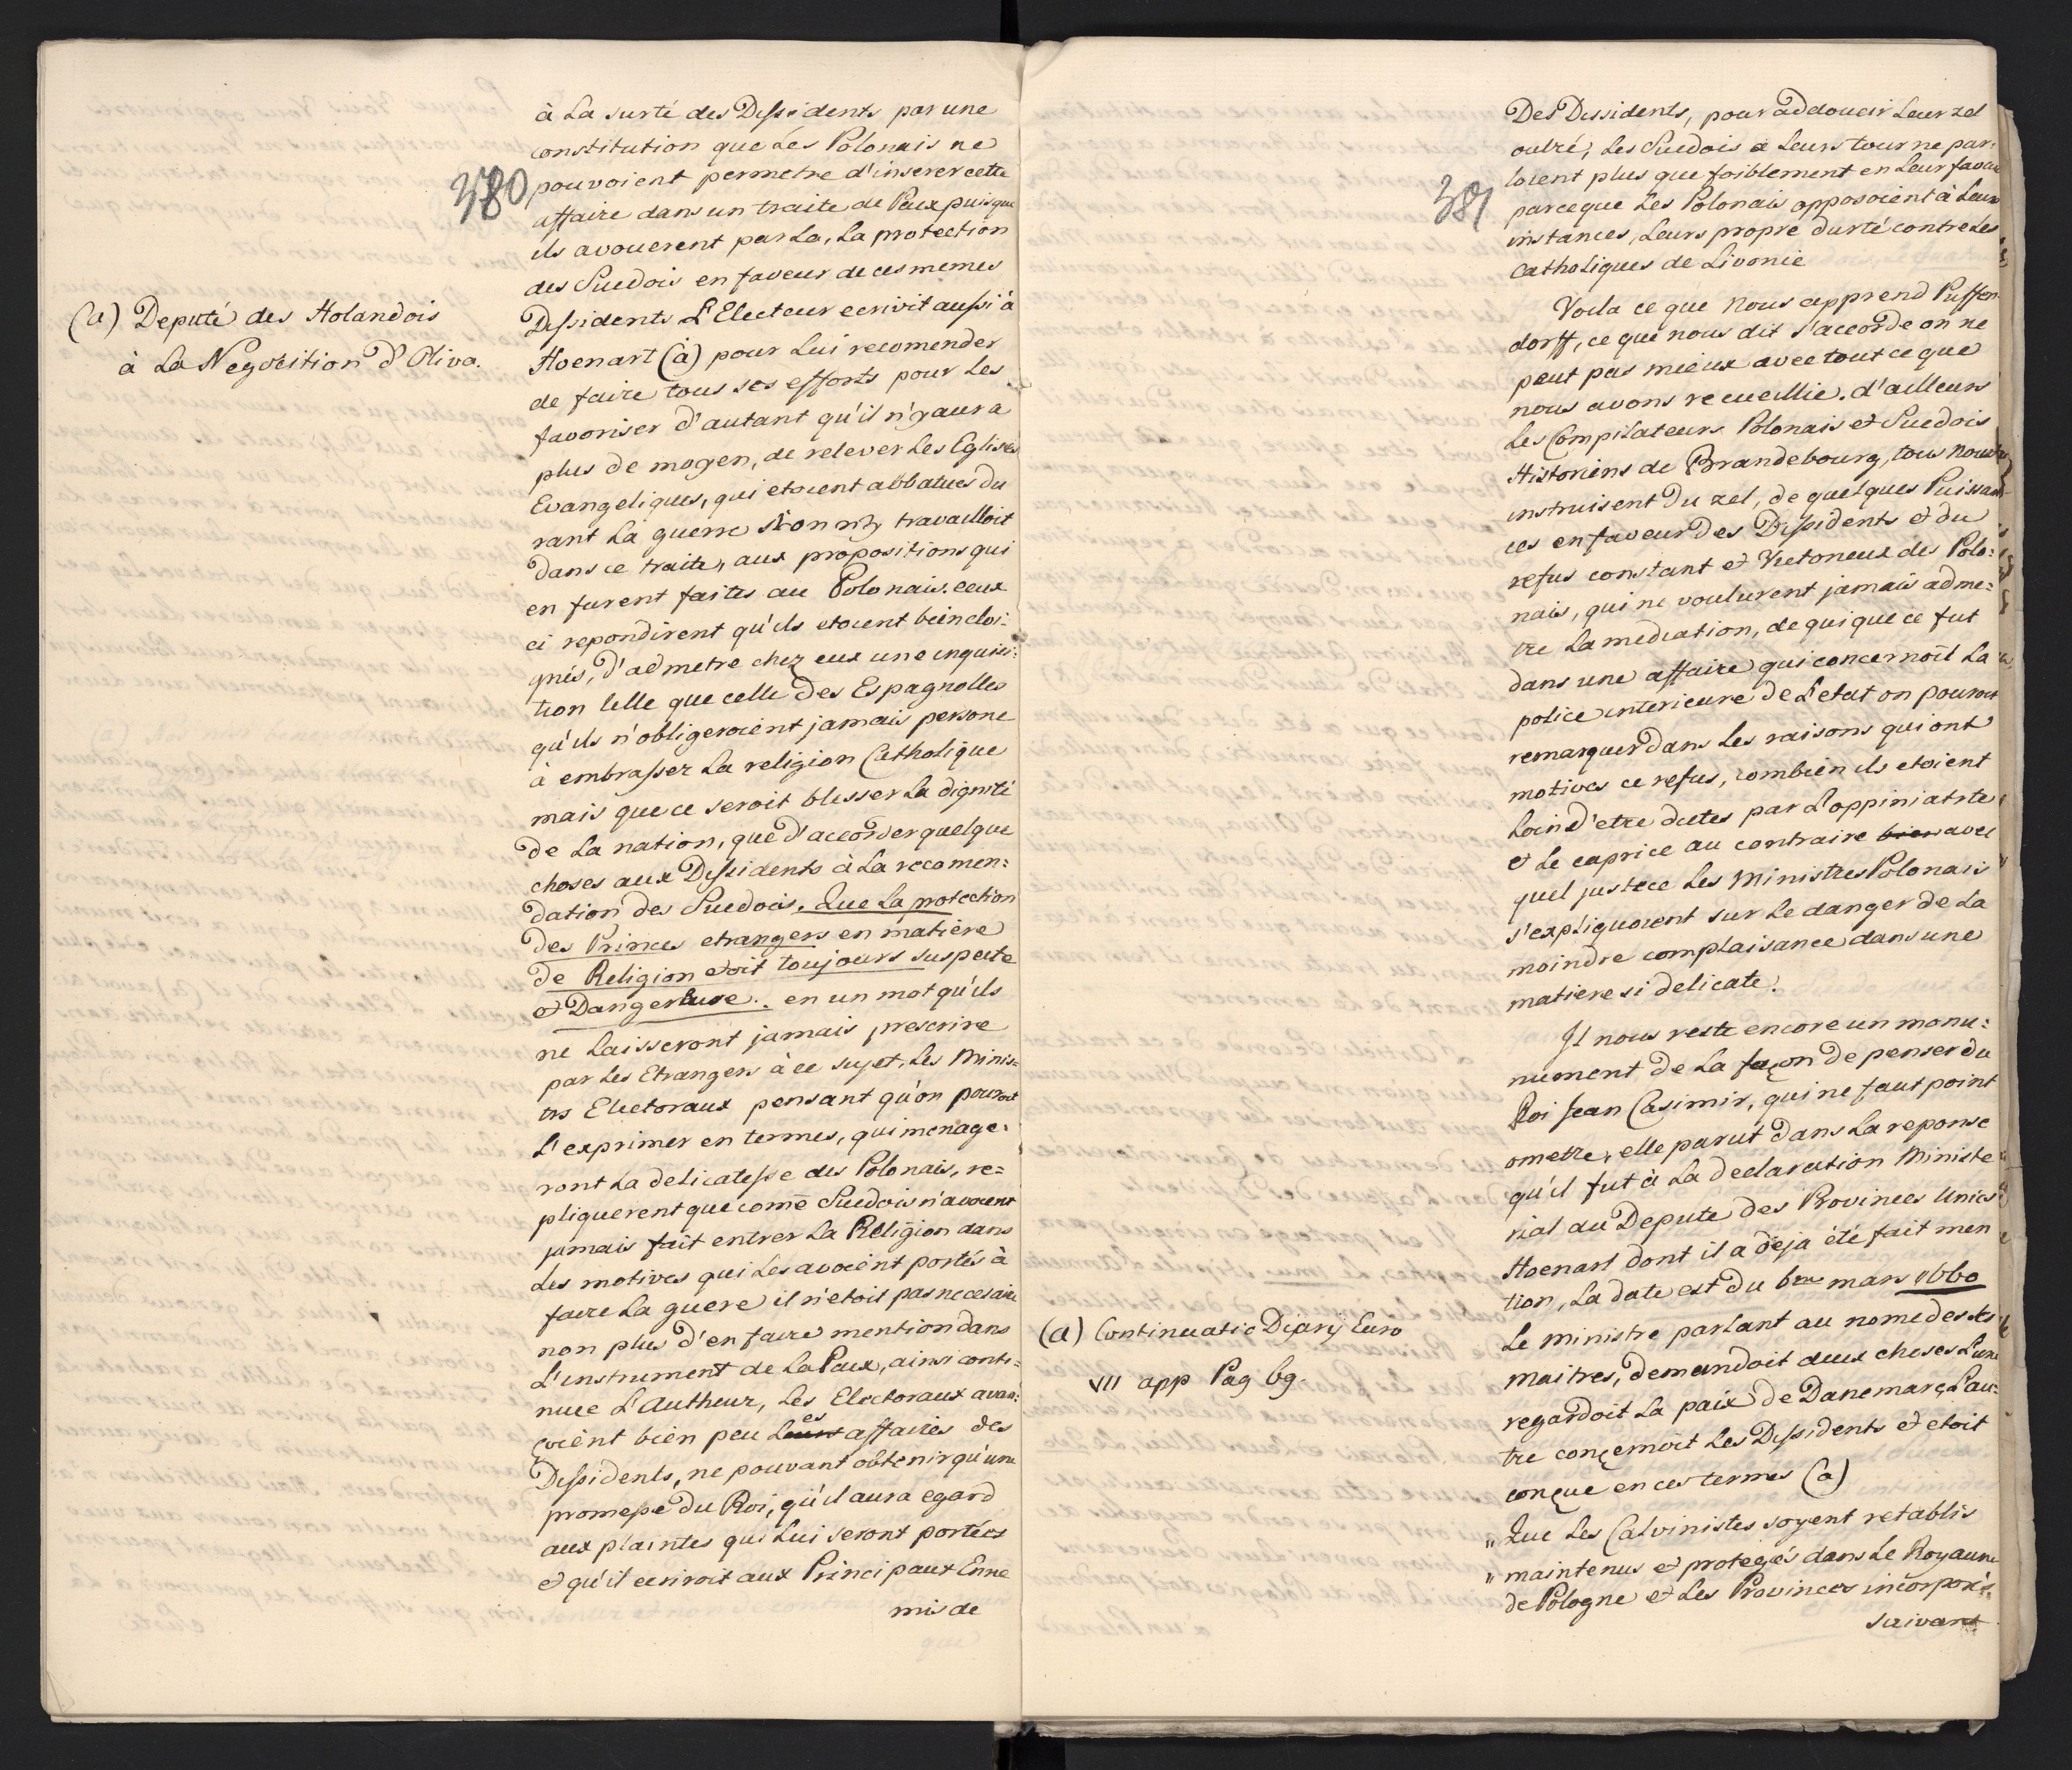 à La surté des Dissidents par une
constitution que Les Polonais ne
380
pouvoient permetre d'inserer cette
affaire dans un traite de Paix puisque
ils avouerent par La, La protection
des Suedois en faveur de ces memes
(a) Deputé des Holandois
à La Negocition d'Oliva.
Dissidents L'Electeur ecrivit aussi à
Hoenart (a) pour Lui recomender
de faire tous ses efforts pour Les
favoriser d'autant qu'il n'y aura
plus de moyen, de relever Les Eglises
Evangeliques, qui etoient abbatues du
rant La guerre si on n'y travailloit
dans ce traite, aux propositions qui
en furent faites au Polonais. ceux
ci repondirent qu'ils etoient bein eloi:
gnés, d'admetre chez eux une inquisi:
tion telle que celle des Espagnolles
qu'ils n'obligeroient jamais persone
à embrasser La religion Catholique
mais que ce seroit blesser La dignité
de La nation, que d'accorder quelque
choses aux Dissidents à La recomen:
dation des Suedois. Que La protection
des Princes etrangers en matiere
de Religion etoit toujours suspecte
et Dangereuse. en un mot qu'ils
ne Laisseront jamais prescrire
par Les Etrangers à ce sujet. Les Minis=
trs Electoraux pensant qu'on pouroit
L'exprimer en termes, qui menage:
ront La delicatesse des Polonais, re=
pliquerent que come Suedois n'avoient
jamais fait entrer La Religion dans
Les motives qui Les avoient portés à
faire La guere il n'etoit pas necesaire
non plus d'en faire mention dans
L'instrument de La Paix, ainsi conti=
nue L'Autheur, Les Electoraux avan:
çoient bien peu Les affaires des
Dissidents, ne pouvant obtenir qu'une
promesse du Roi, qu'il aura egard
aux plaintes qui Lui seront portées
et qu'il ecriroit aux Principaux Enne
mis de
Des Dissidents, pour addoucir Leur zel
outré, Les Suedois a Leurs tour ne par:
loient plus que foiblement en Leur faveur
381
parceque Les Polonais opposoient à Leurs
instances, Leurs propre durté contre Les
Catholiques de Livonie
Voila ce que Nous apprend Puffen
dorff, ce que nous dit s'accorde on ne
peut pas mieux avec tout ce que
nous avons recueillie. d'ailleurs
Les Compilateurs Polonais et Suedois
Historiens de Brandebourg, tous nous
instruisent du zel, de quelques Puissan
ces en faveur des Dissidents et du
refus constant et Victorieux des Polo:
nais, qui ne voulurent jamais adme=
tre La mediation, de qui que ce fut
dans une affaire qui concernoit La
police interieure de L'etat on pouroit
remarquer dans Les raisons qui ont
motives ce refus, combien ils etoient
Loin d'etre dictes par L'oppiniatrte
et Le caprice au contraire bien avec
quel justece Les Ministres Polonais
s'expliquoient sur Le danger de La
moindre complaisance dans une
matiere si delicate.
Il nous reste encore un monu:
nument de La façon de penser du
Roi Jean Casimir, qui ne faut point
ometre, elle parut dans La reponse
qu'il fut à La declaration Ministe
rial au Depute des Provinces Unies
Hoenart dont il a deja été fait men
tion, La date est du 6me mars 1660
(a) Continuatio Diarij Euro
VII app Pag 69.
Le ministre parlant au nome des ses
maitres, demandoit deux choses L'une
regardoit La paix de Danemarc, L'au:
tre conçernoit Les Dissidents et etoit
conçue en ces termes (a)
" Que Les Calvinistes soyent retablis
" maintenus et protegés dans Le Royaume
de Pologne et Les Provinces incorporés
suivant